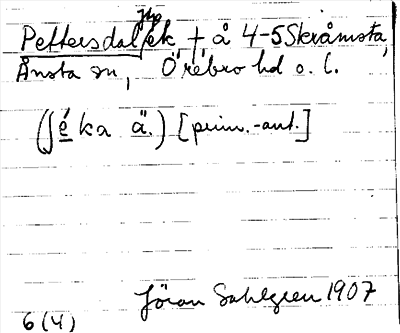 Pettersdal, ek † å 4-5 Skråmsta,
Ånsta sn, Örebro hd o. l.
(ʃéka ä.) [prim.-ant.]
Jöran Sahlgren 1907
6 (4)